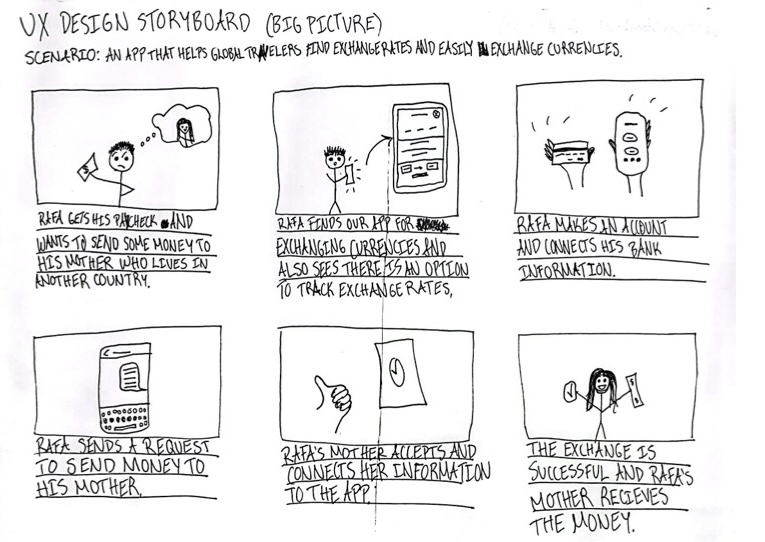 UX DESIGN STORYBOARD (BIG PICTURE)
SCENARIO: AN APP THAT HELPS GLOBAL TRAVELERS FIND EXCHANGE RATES AND EASILY EXCHANGE CURRENCIES.
$
RAFA GETS HIS PAYCHECK AND
WANTS TO SEND SOME MONEY TO
HIS MOTHER WHO LIVES IN
ANOTHER COUNTRY.
RAFA FINDS OUR APP FOR
EXCHANGING CURRENCIES AND
ALSO SEES THERE IS AN OPTION
TO TRACK EXCHANGE RATES,
RAFA MAKES AN ACCOUNT
AND CONNECTS HIS BANK
INFORMATION.
RAFA SENDS A REQUEST
TO SEND MONEY TO
HIS MOTHER.
RAFA'S MOTHER ACCEPTS AND
CONNECTS HER INFORMATION
TO THE APP.
$
$
THE EXCHANGE IS
SUCCESSFUL AND RAFA'S
MOTHER RECIEVES
THE MONEY.